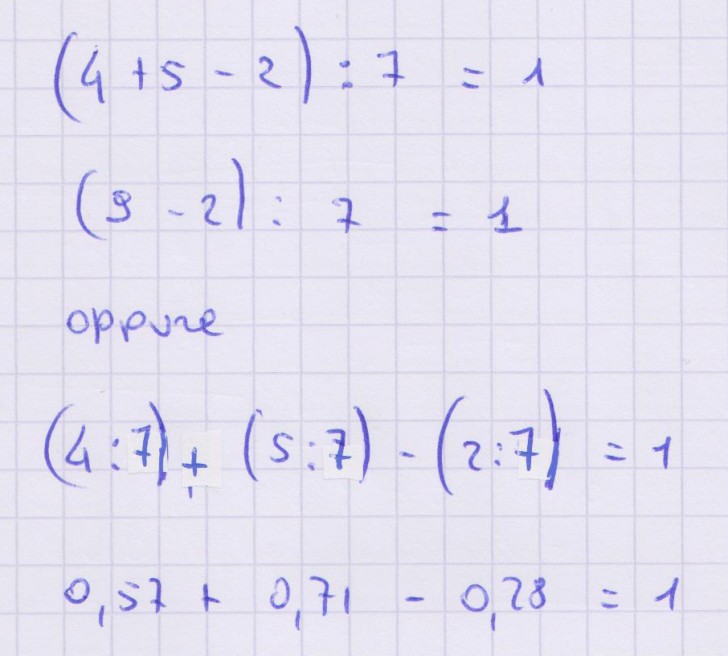 (4 + 5 - 2) : 7 = 1
(9 - 2) : 7 = 1
oppure
(4 : 7) + (5 : 7) - (2 : 7) = 1
0,57 + 0,71 - 0,28 = 1